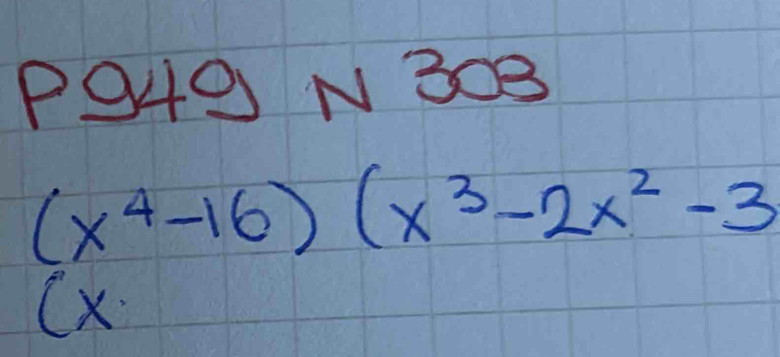 P949 N 303
(x⁴-16) (x³-2x²-3
(x